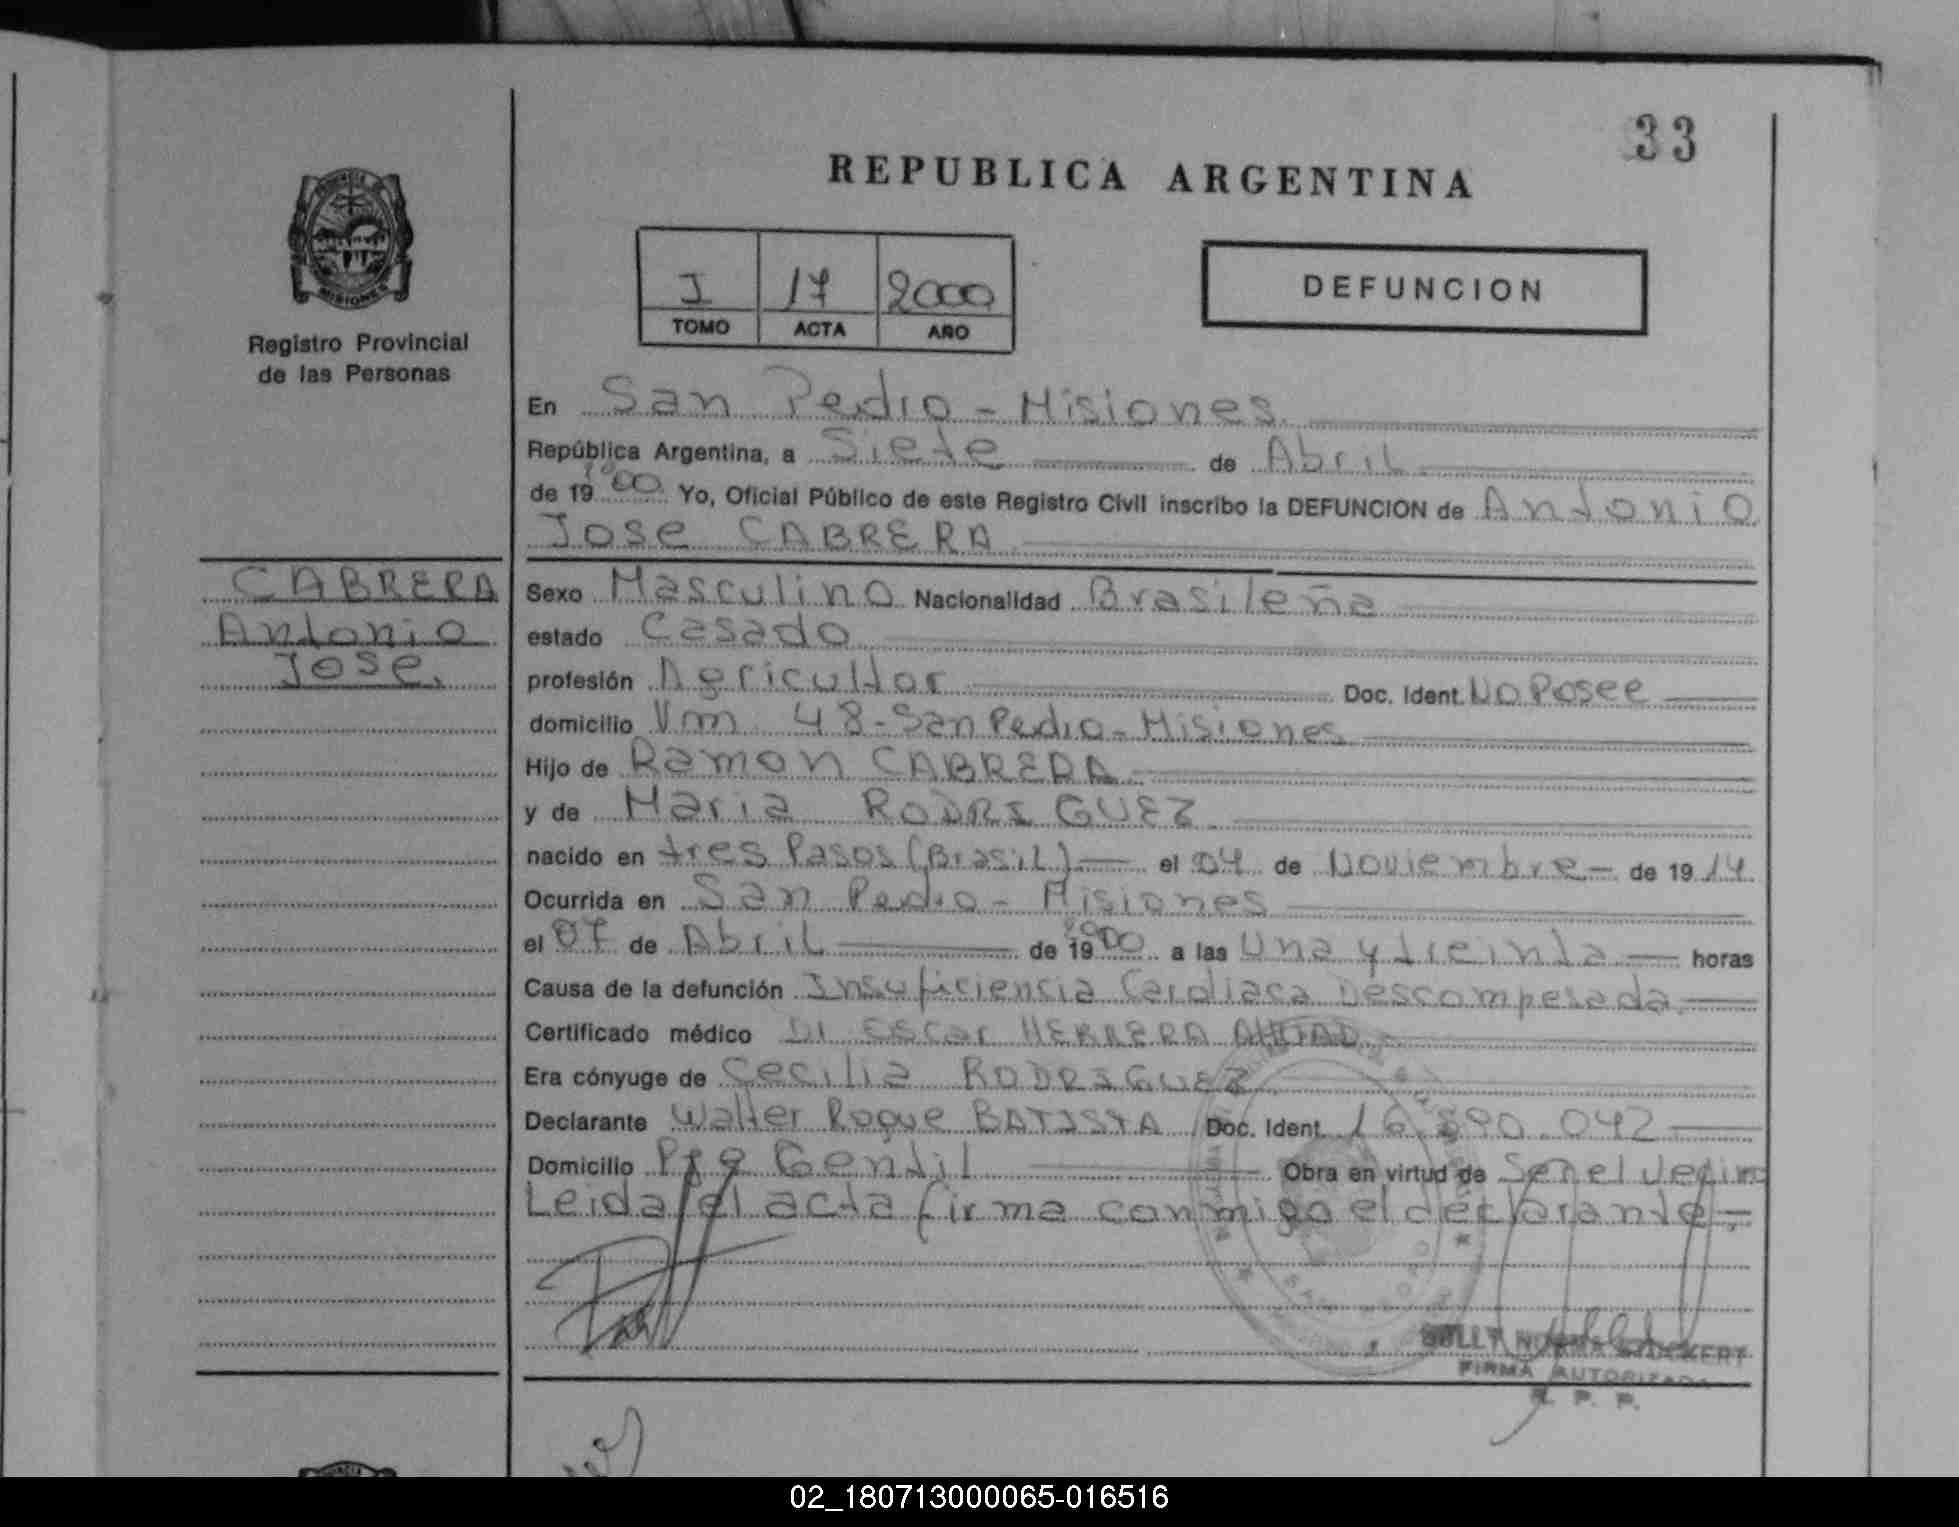 33
REPUBLICA ARGENTINA
PROVINCIA DE
MISIONES
Registro Provincial
de las Personas
I 17 2000
TOMO ACTA AÑO
DEFUNCION
En San Pedro - Misiones
República Argentina, a Siete de Abril
de 19 2000 Yo, Oficial Público de este Registro Civil inscribo la DEFUNCION de Antonio
Jose CABRERA
CABRERA
Antonio
Jose.
Sexo Masculino Nacionalidad Brasileña
estado Casado
profesión Agricultor Doc. Ident. No Posee
domicilio Km 48 - San Pedro - Misiones
Hijo de Ramon CABRERA
y de Maria RODRIGUEZ
nacido en tres Pasos (Brasil) el 04 de Noviembre - de 19 14
Ocurrida en San Pedro - Misiones
el 07 de Abril de 19 2000 a las Una y treinta horas
Causa de la defunción Insuficiencia Cardiaca Descompesada
Certificado médico Dr Oscar HERRERA AHUAD
Era cónyuge de Cecilia RODRIGUEZ
Declarante Walter Roque BATISTA Doc. Ident. 16.590.042
Domicilio Pje Gentil Obra en virtud de Ser el Vecino
Leida el acta firma conmigo el declarante.-
NORMA
FIRMA AUTORIZADA
R. P. P.
02_180713000065-016516